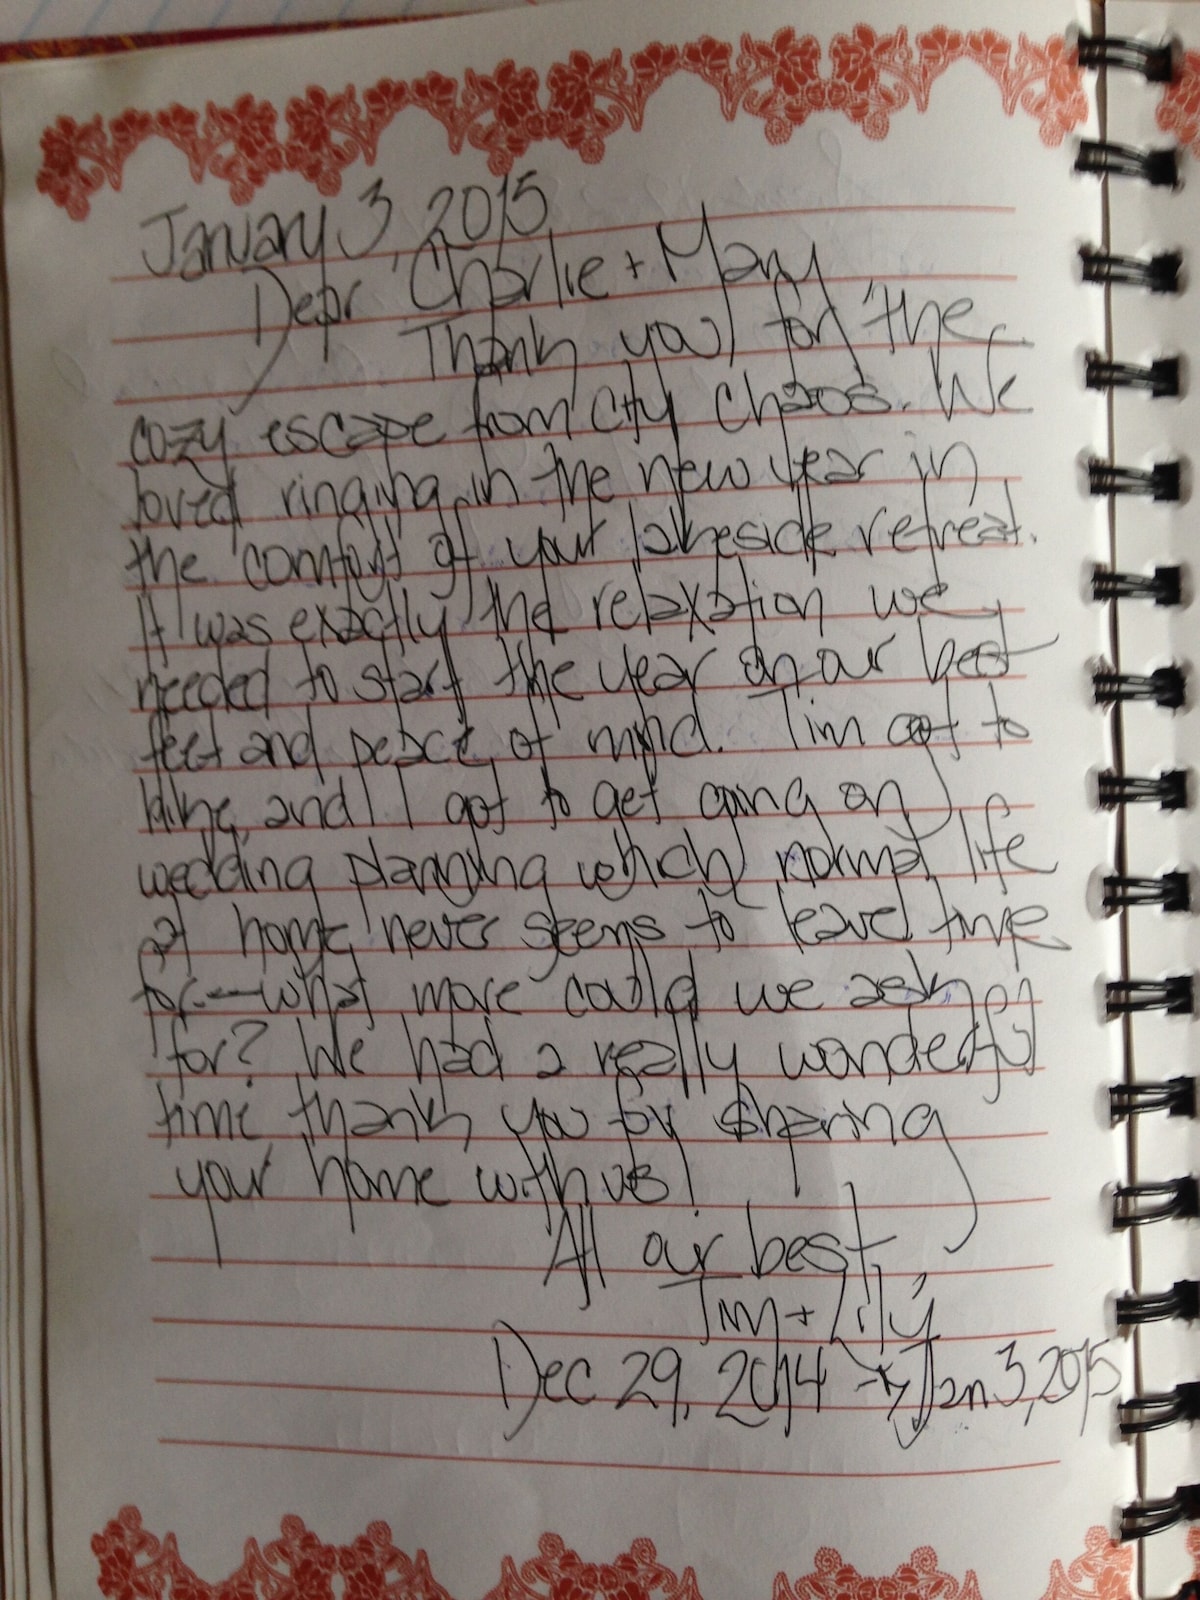 January 3, 2015
Dear Charlie + Mary
Thank you for the
cozy escape from city chaos. We
loved ringing in the new year in
the comfort of your lakeside retreat.
It was exactly the relaxation we
needed to start the year on our best
feet and peace of mind. Tim got to
hike, and I got to get going on
wedding planning which normal life
at home never seems to leave time
for - what more could we ask
for? We had a really wonderful
time, thank you for sharing
your home with us!
All our best,
Tim + Lily
Dec 29, 2014 → Jan 3, 2015